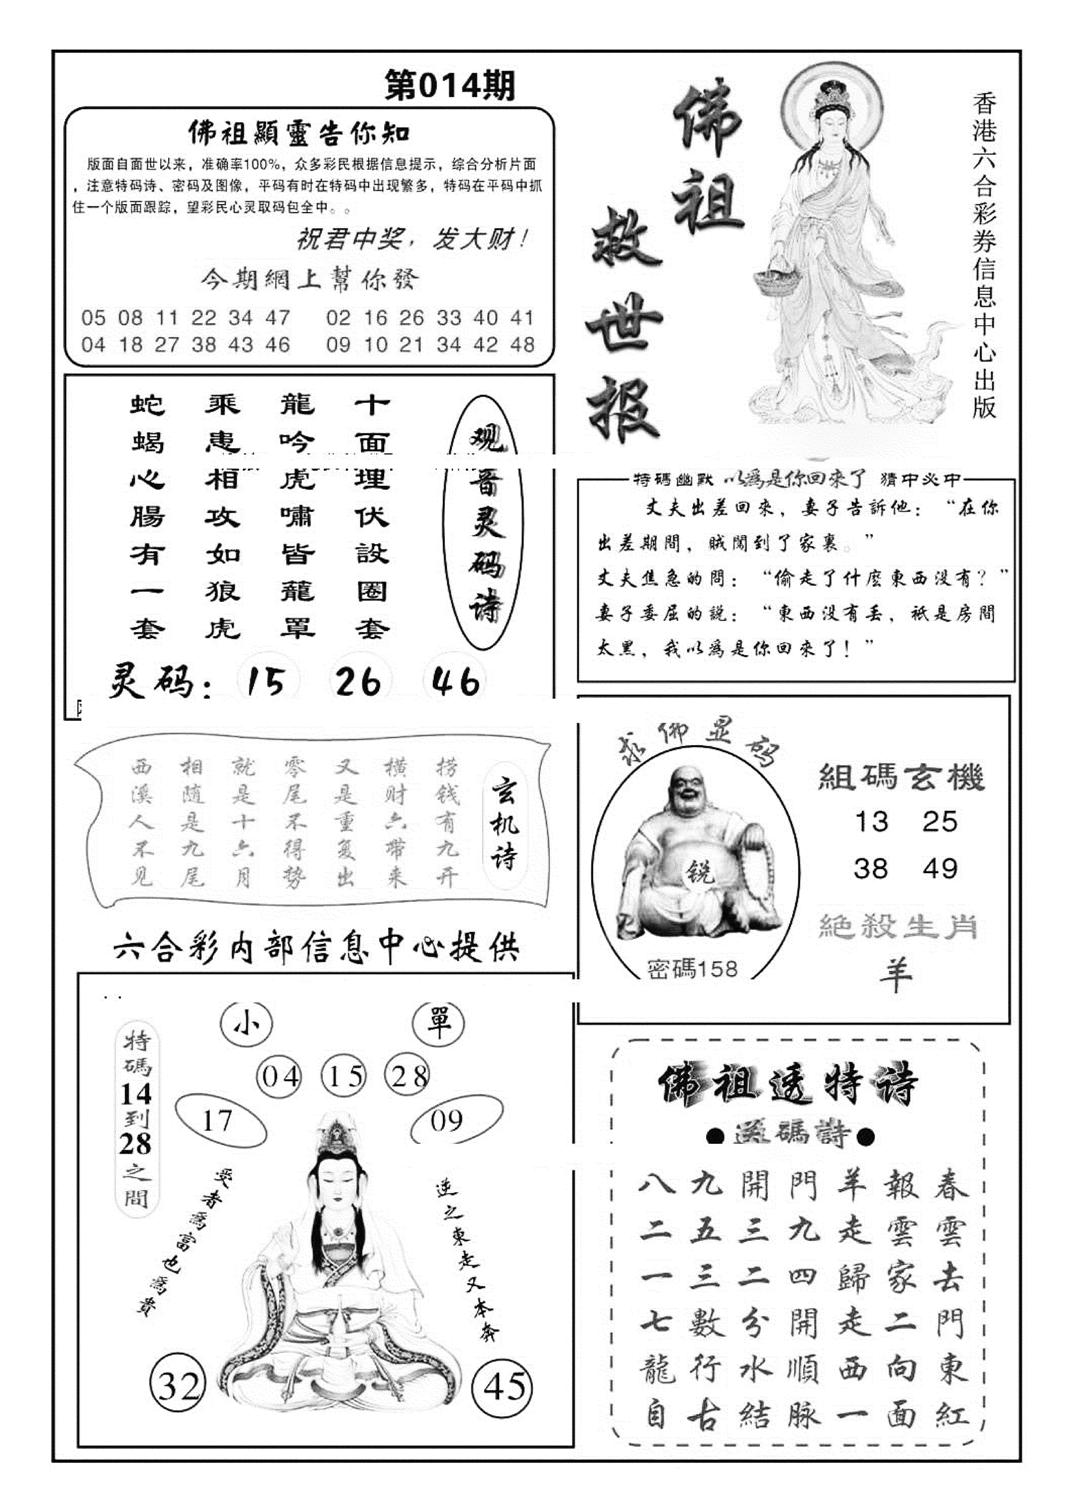 第014期
佛祖顯靈告你知
版面自面世以来，准确率100%，众多彩民根据信息提示，综合分析片面
，注意特码诗、密码及图像，平码有时在特码中出现繁多，特码在平码中抓
住一个版面跟踪，望彩民心灵取码包全中。。
祝君中奖，发大财！
今期網上幫你發
05 08 11 22 34 47 02 16 26 33 40 41
04 18 27 38 43 46 09 10 21 34 42 48
佛祖
救世报
香港六合彩券信息中心出版
观音灵码诗
十面埋伏設圈套
龍吟虎嘯皆籠罩
乘患相攻如狼虎
蛇蝎心腸有一套
灵码：15 26 46
特碼幽默 以為是你回來了 猜中必中
丈夫出差回來，妻子告訴他：“在你
出差期間，賊闖到了家裏。”
丈夫焦急的問：“偷走了什麼東西没有？”
妻子委屈的說：“東西没有丢，祇是房間
太黑，我以為是你回來了！”
玄机诗
捞钱有九开
横财六带来
又是重复出
零尾不得势
就是十六月
相随是九尾
西溪人不见
求佛显码
锐
密碼158
組碼玄機
13 25
38 49
絕殺生肖
羊
六合彩内部信息中心提供
小 單
04 15 28
17 09
特碼14到28之間
受者為富也為貴
逆之東走又本奔
32 45
佛祖透特诗
●送碼詩●
春雲去門東紅
報雲家二向面
羊走歸走西一
門九四開順脉
開三二分水結
九五三數行古
八二一七龍自